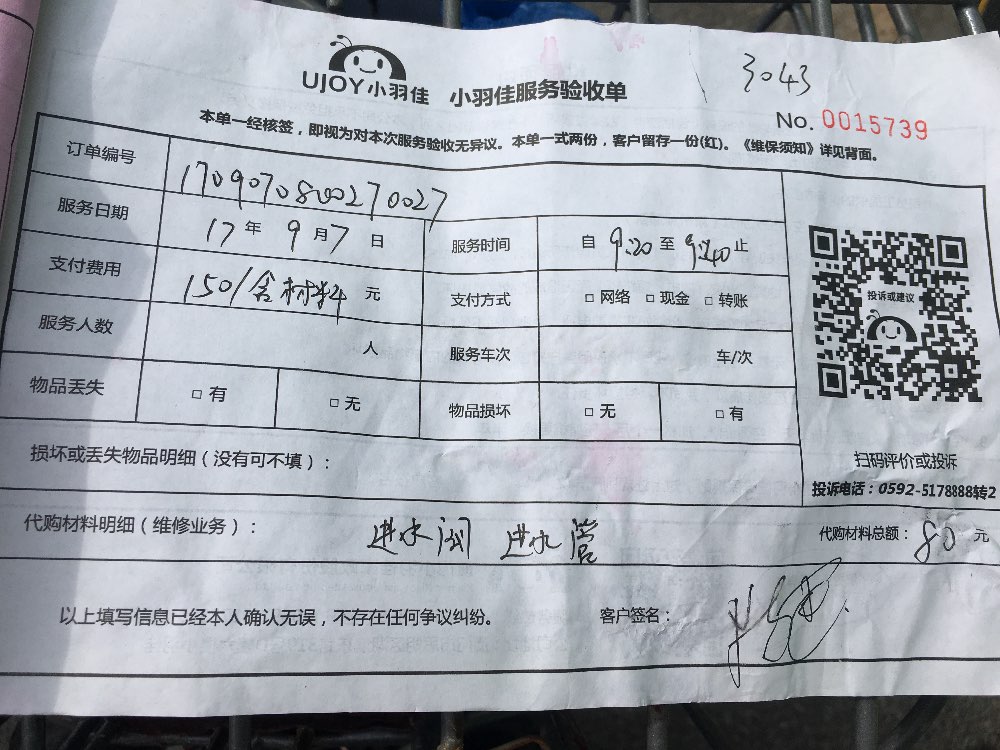 3043
UJOY小羽佳 小羽佳服务验收单
No. 0015739
本单一经核签，即视为对本次服务验收无异议。本单一式两份，客户留存一份(红)。《维保须知》详见背面。
订单编号 170907080270027
服务日期 17年 9月7日 服务时间 自 9:20 至 9:40 止
支付费用 150/含材料 元 支付方式 □ 网络 □ 现金 □ 转账
服务人数 人 服务车次 车/次
物品丢失 □ 有 □ 无 物品损坏 □ 无 □ 有
投诉或建议
扫码评价或投诉
投诉电话：0592-5178888转2
损坏或丢失物品明细（没有可不填）：
代购材料明细（维修业务）： 进水阀 进水管 代购材料总额：80 元
以上填写信息已经本人确认无误，不存在任何争议纠纷。 客户签名：